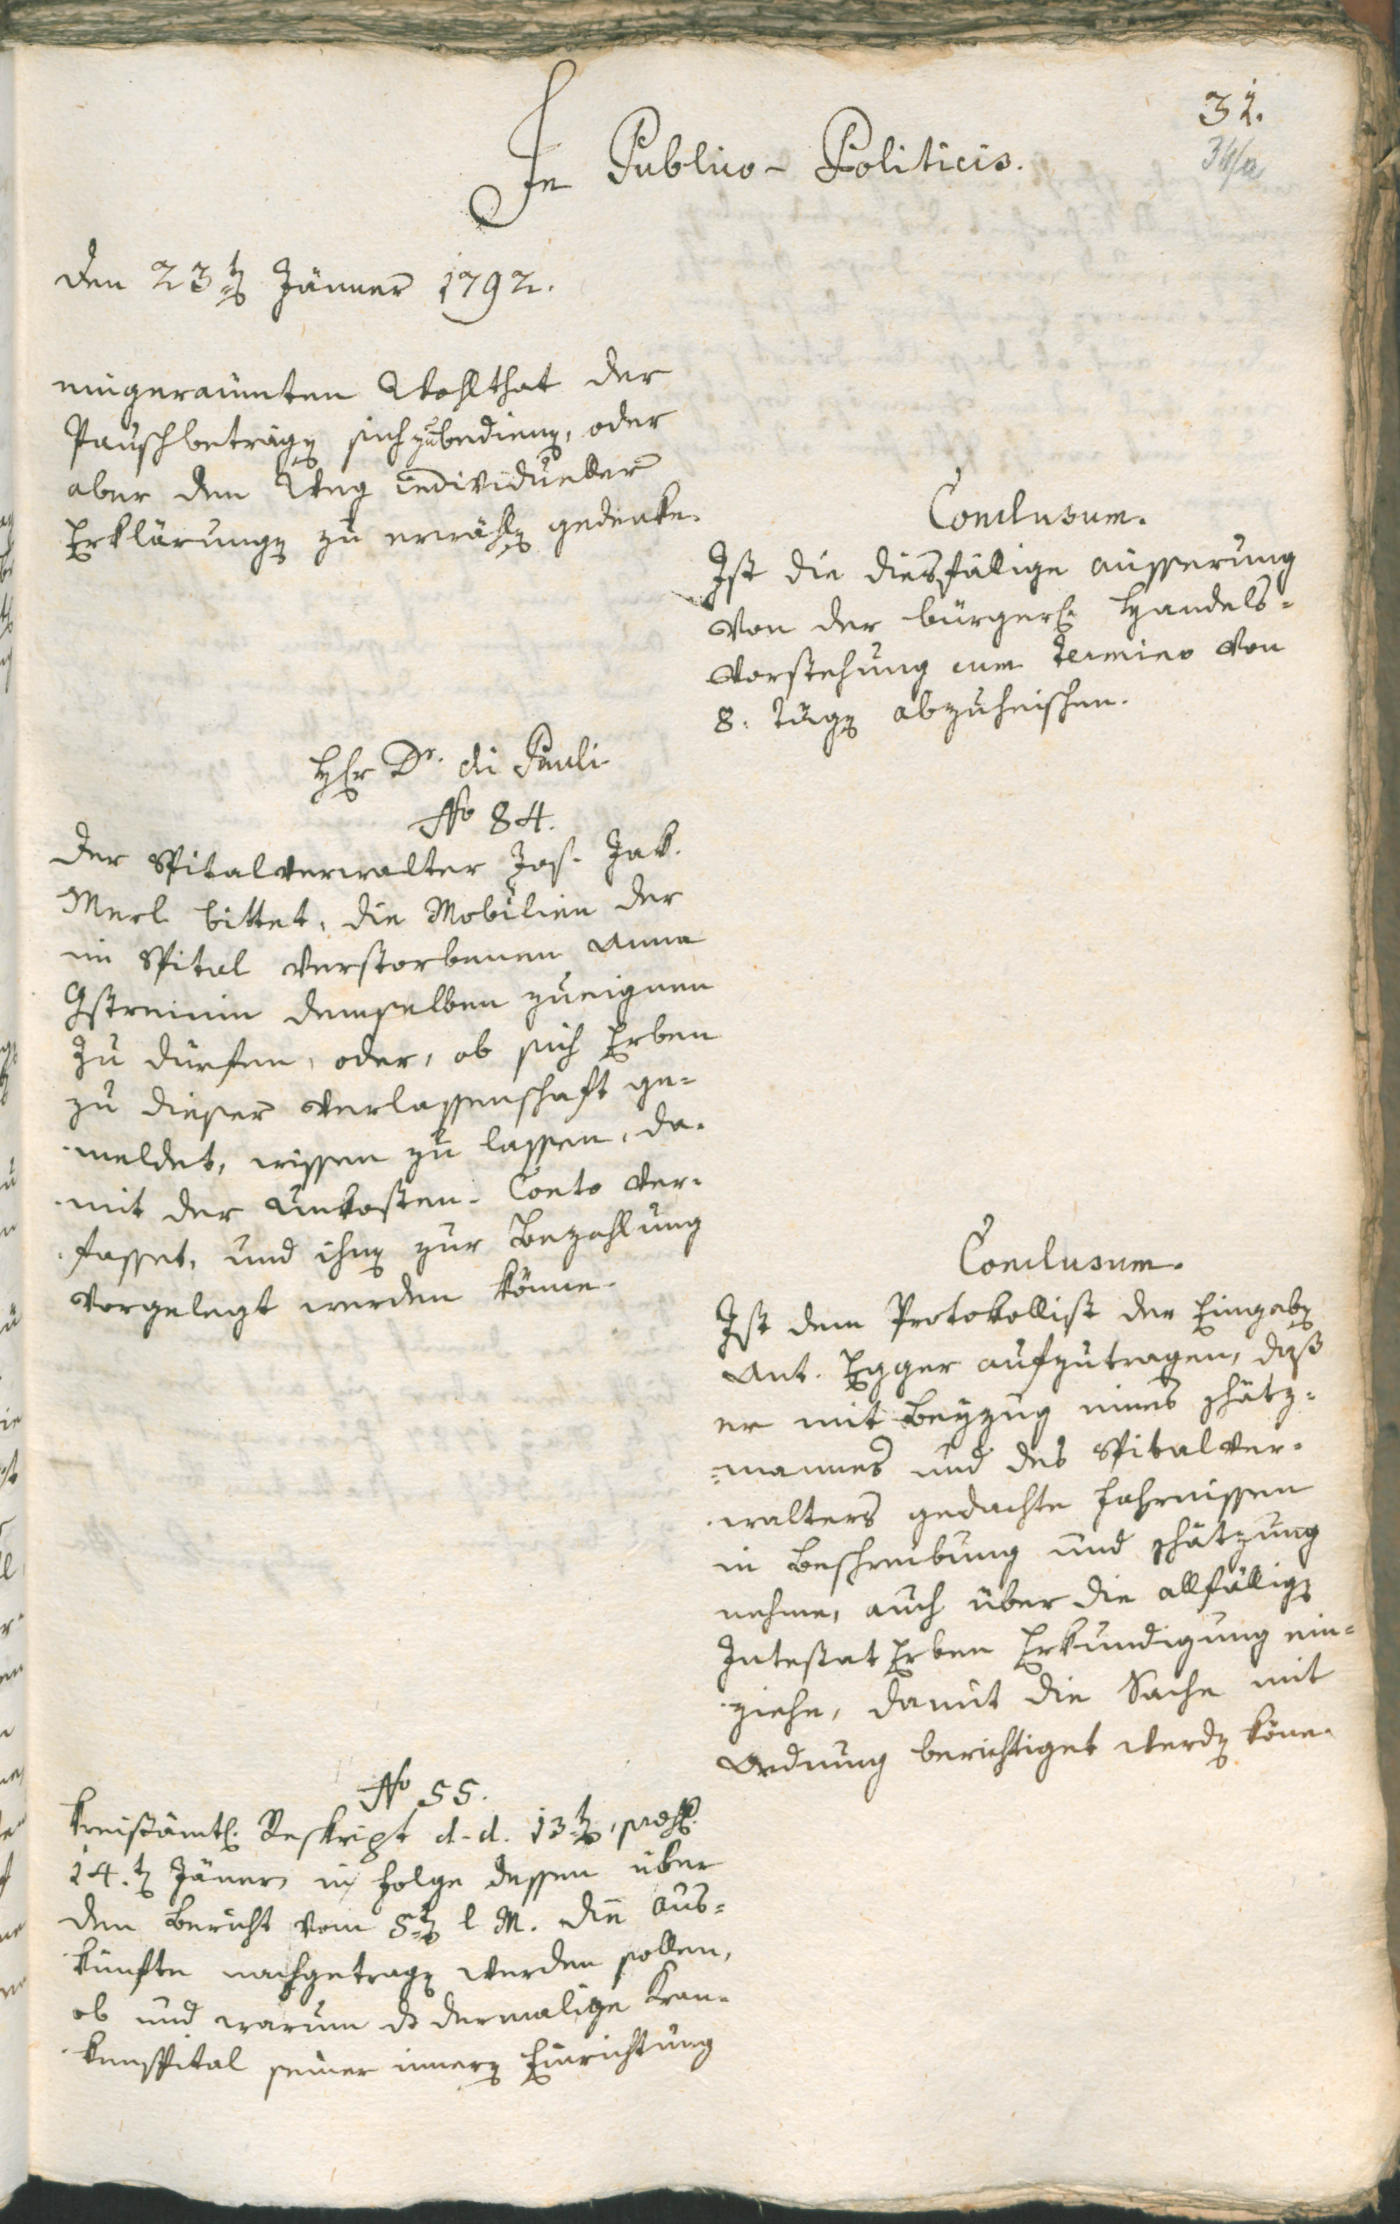 31.
34/a
In Publico-Politicis.
den 23ten Jänner 1792.
eingeraumten Wohlthat der
Pauschbeträgen sich zu bedienen, oder
aber den Weg individueller
Erklärungen zu erwählen gedenke.
Conclusum.
Ist die diesfällige äusserung
von der bürgerl. Handels-
vorstehung cum Termino von
8. tägen abzuheischen.
Hr Dr. di Pauli
No 84.
Der Spitalverwalter Jos. Jak.
Merl bittet, die Mobilien der
im Spital verstorbenen Anna
Gstreinin demselben zueignen
zu dürfen, oder, ob sich Erben
zu dieser verlassenschaft ge-
meldet, wissen zu lassen, da-
mit der Unkosten-Conto ver-
fasset, und ihnen zur Bezahlung
vorgelegt werden könne.
Conclusum.
Ist dem Protokollist der Eingaben
Ant. Egger aufzutragen, daß
er mit Beyzug eines schätz-
mannes und des Spitalver-
walters gedachte fahrnissen
in Beschreibung und schätzung
nehme, auch über die allfälligen
Intestat Erben Erkundigung ein-
ziehe, damit die Sache mit
Ordnung berichtiget werden könne.
No 55.
Kreisämtl. Reskript d. d. 13ten, praes.
14.ten Jäner, in folge dessen über
den Bericht vom 5ten l. M. die Aus-
künfte nachgetragen werden sollen,
ob und warum das dermalige Kran-
kenspital seiner innern Einrichtung